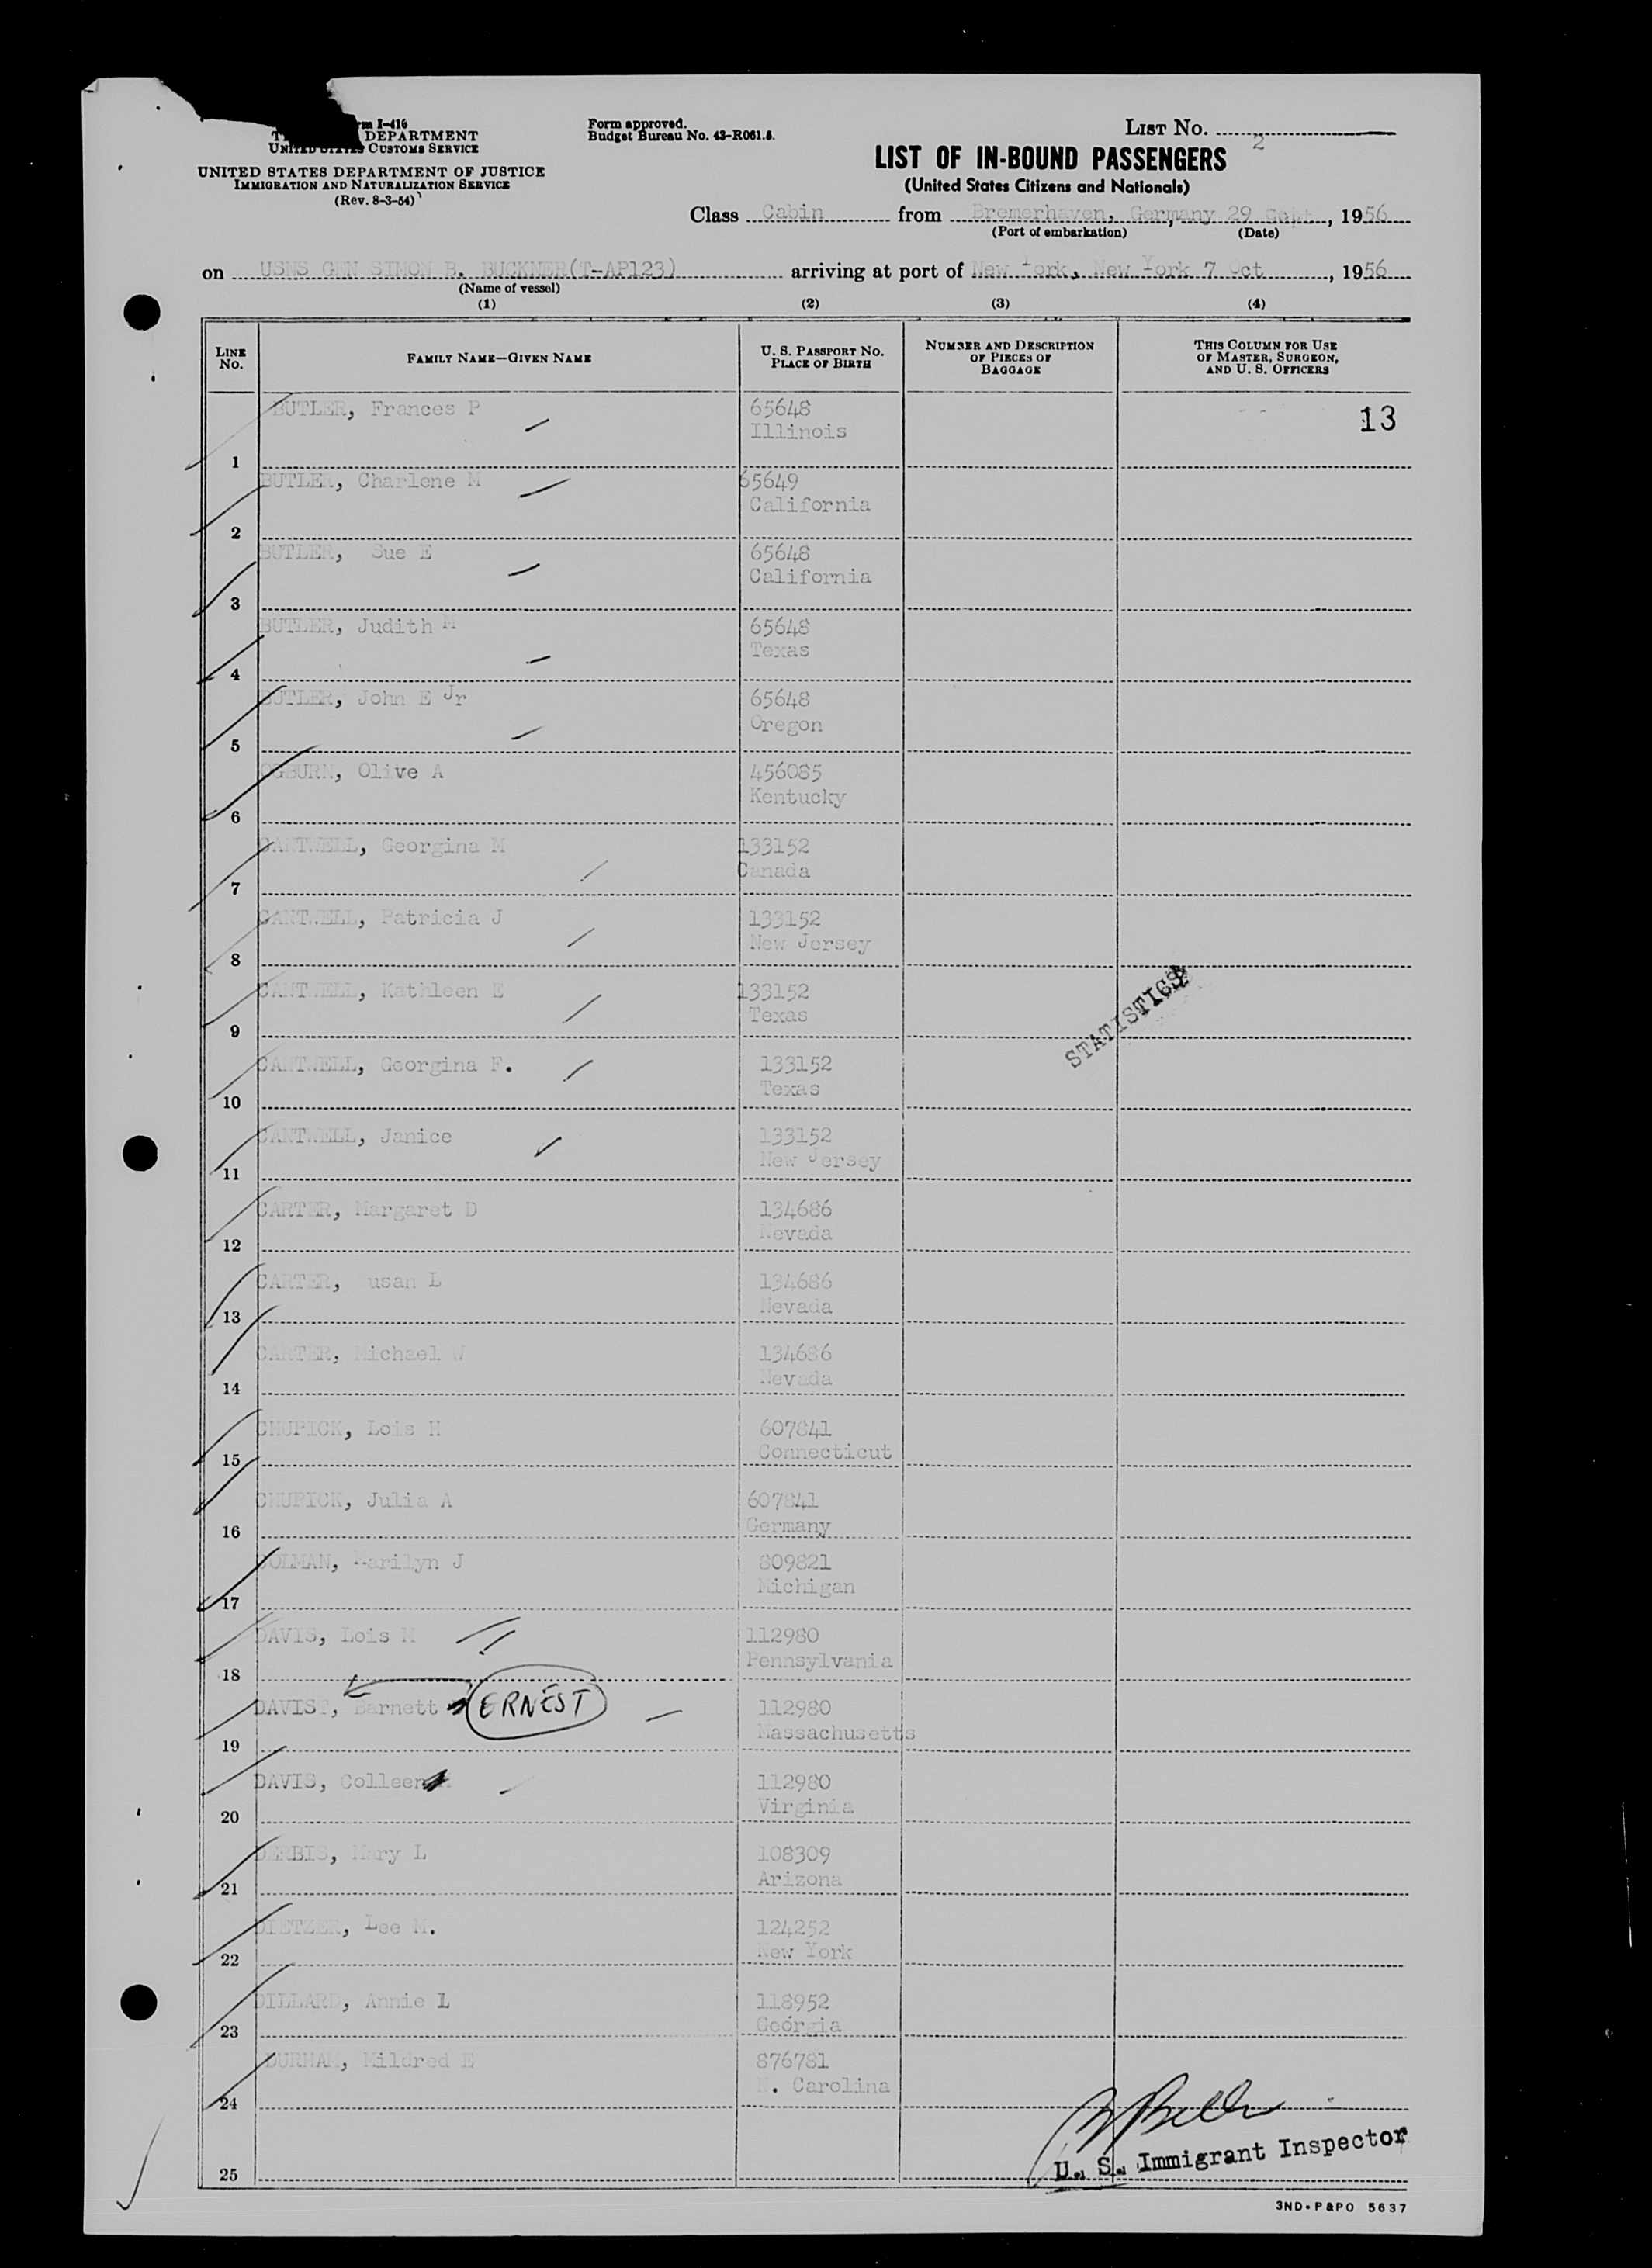 rm I-416
DEPARTMENT
UNITED STATES CUSTOMS SERVICE
UNITED STATES DEPARTMENT OF JUSTICE
IMMIGRATION AND NATURALIZATION SERVICE
(Rev. 8-3-54)
Form approved.
Budget Bureau No. 43-R061.5.
LIST No. 2
LIST OF IN-BOUND PASSENGERS
(United States Citizens and Nationals)
Class Cabin from Bremerhaven, Germany 29 Sept, 1956
(Port of embarkation) (Date)
on USNS GEN SIMON B. BUCKNER(T-AP123) arriving at port of New York, New York 7 Oct, 1956
(Name of vessel)
(1) (2) (3) (4)
LINE No. FAMILY NAME—GIVEN NAME U. S. PASSPORT NO. PLACE OF BIRTH NUMBER AND DESCRIPTION OF PIECES OF BAGGAGE THIS COLUMN FOR USE OF MASTER, SURGEON, AND U. S. OFFICERS
BUTLER, Frances P 65648 13
Illinois
1
BUTLER, Charlene M 65649
California
2
BUTLER, Sue E 65648
California
3
BUTLER, Judith M 65648
Texas
4
BUTLER, John E Jr 65648
Oregon
5
OGBURN, Olive A 456085
Kentucky
6
CANTWELL, Georgina M 133152
Canada
7
CANTWELL, Patricia J 133152
New Jersey
8
CANTWELL, Kathleen E 133152
Texas
9
STATISTICS
CANTWELL, Georgina F. 133152
Texas
10
CANTWELL, Janice 133152
New Jersey
11
CARTER, Margaret D 134686
Nevada
12
CARTER, usan L 134686
Nevada
13
CARTER, Michael W 134686
Nevada
14
CHUPICK, Lois H 607841
Connecticut
15
CHUPICK, Julia A 607841
Germany
16
COLMAN, Marilyn J 809821
Michigan
17
DAVIS, Lois M 112980
Pennsylvania
18
DAVIS, Barnett ERNEST 112980
Massachusetts
19
DAVIS, Colleen 112980
Virginia
20
DERBIS, Mary L 108309
Arizona
21
DIETZER, Lee M. 124252
New York
22
DILLARD, Annie L 118952
Georgia
23
DURHAM, Mildred E 876781
N. Carolina
24
U. S. Immigrant Inspector
25
3ND-P&PO 5637